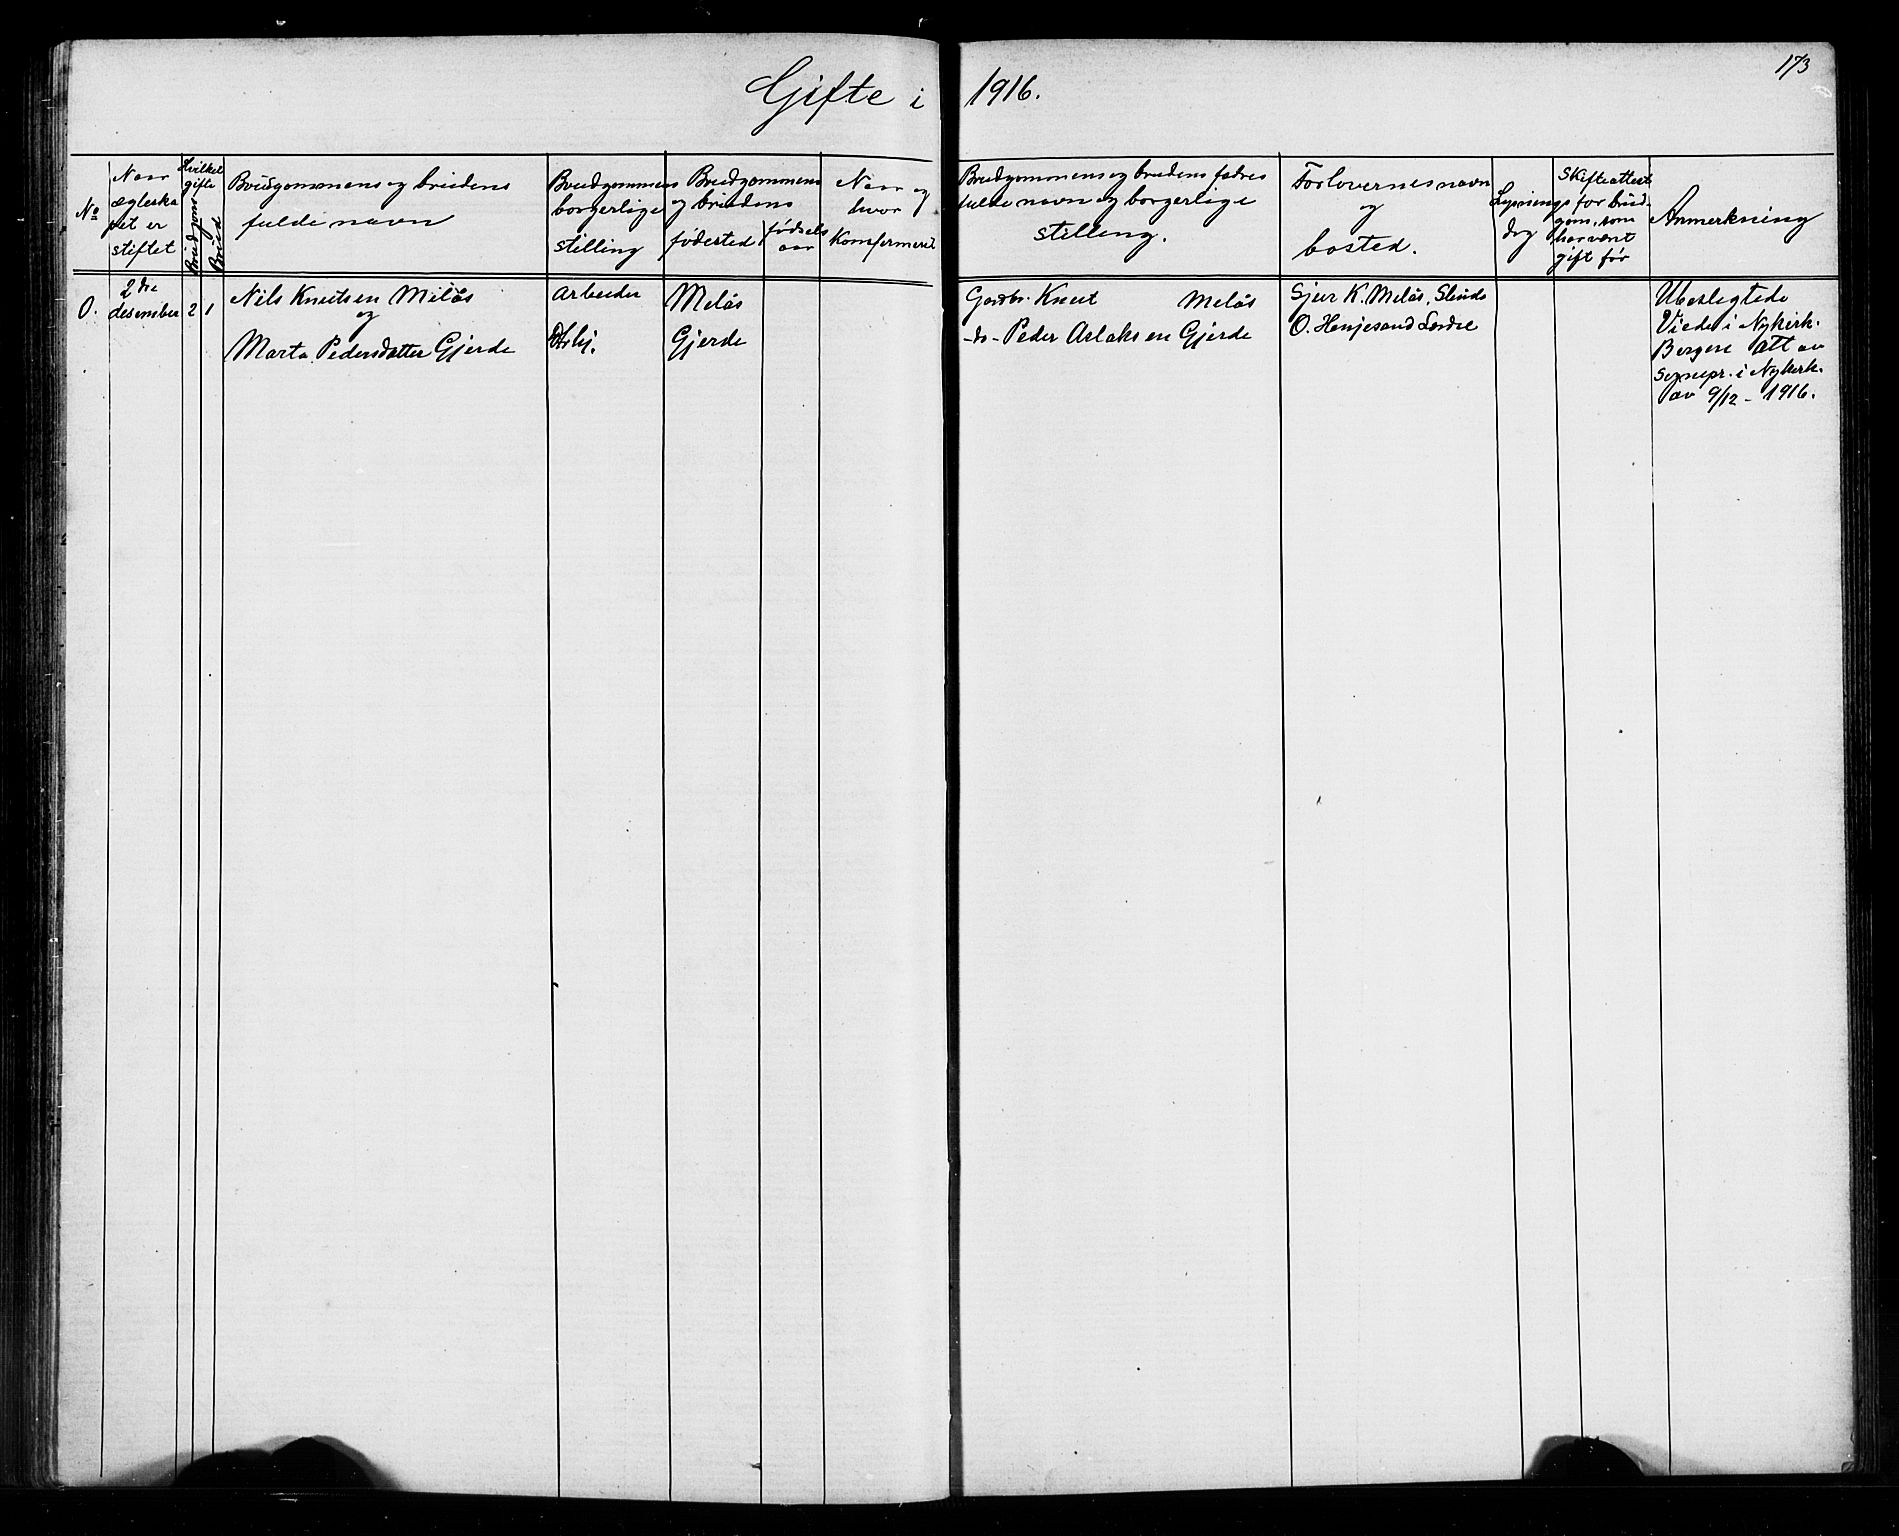 173
Gifte i 1916.
No
Naar
egteska
pet er
stiftet
Hvilket
gifte
Brudgom
Brud
Brudgommens og brudens
fulde navn
Brudgommens
borgerlige
stilling
Brudgommens
og brudens
fødested
fødsels
aar
Naar og
hvor
Konfirmeret
Brudgommens og brudens fædres
fulde navn og borgerlige
stilling.
Forlovernes navn
og
bosted.
Lysnings
dag
Skifteattest
for brud-
gom, som
har vært
gift før
Anmerkning
0.
2dre
desember
2 1
Nils Knutsen Melås
og
Marta Pedersdatter Gjerde
Arbeider
Melås
Gjerde
Gaardbr. Knut Melås
-do- Peder Aslaksen Gjerde
Sjur K. Melås, Slinde
O. Henjesand Lærdal
Ubeslegtede
Viede i Nykirk.
Bergen Att av
Sognepr. i Nykirk.
av 9/12 - 1916.